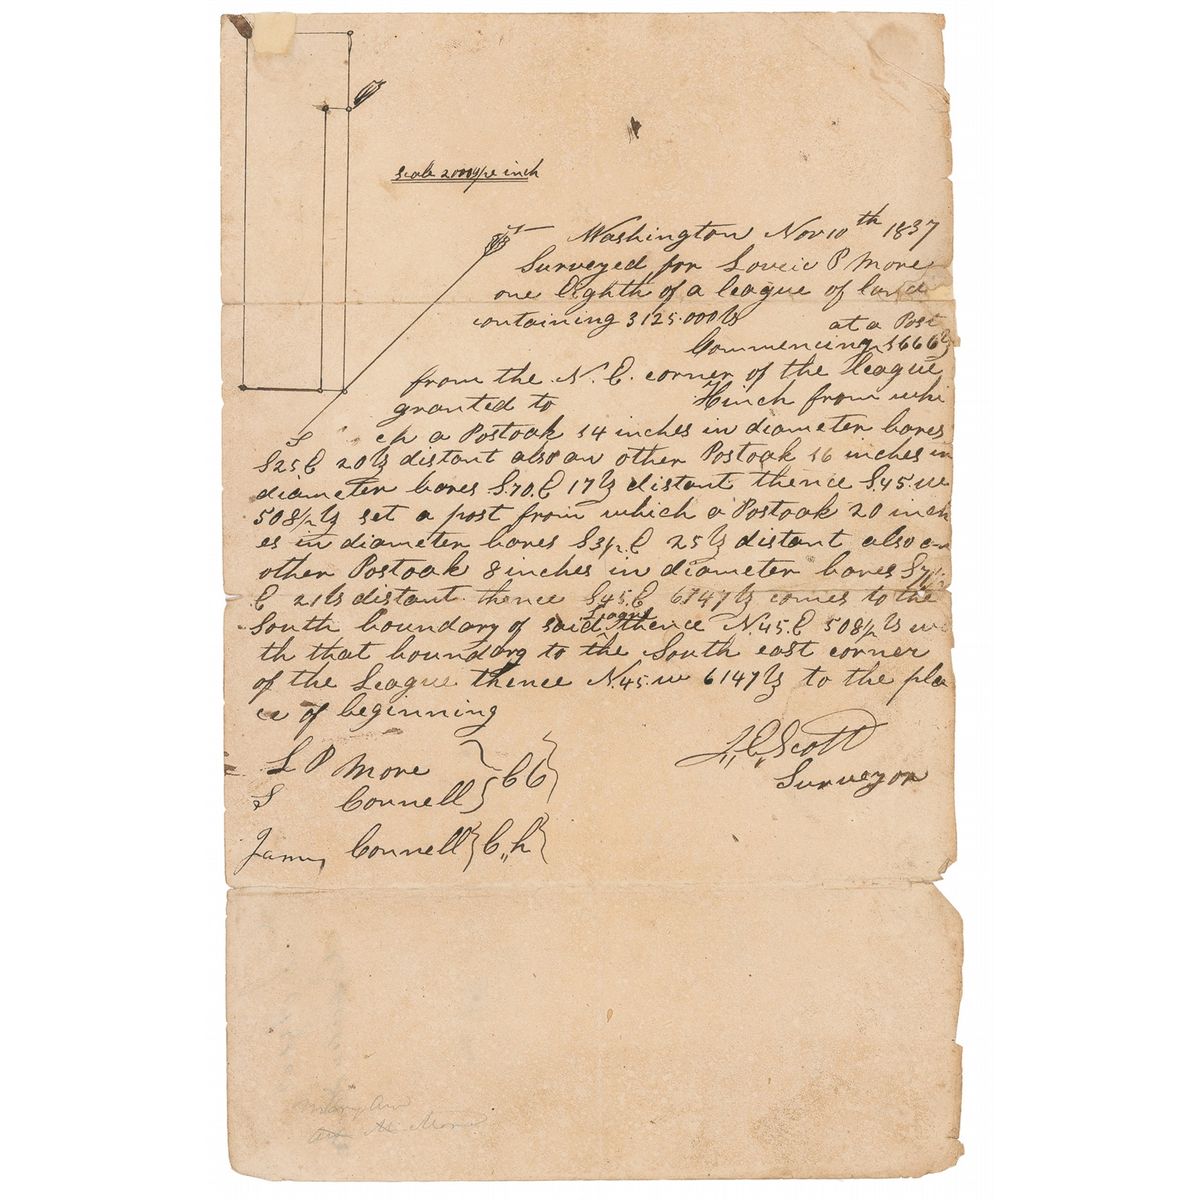 Scale 2000 Vs pr inch
Washington Nov 10th 1837
Surveyed for Lovic P More
one Eighth of a league of land
containing 3125.000 Vs at a Post
Commencing 1666 Vs
from the N. E. corner of the League
granted to Hinch from whi
ch a Postoak 14 inches in diameter bares
S25 E 20 Vs distant also an other Postoak 16 inches in
diameter bares S.70.E 17 Vs distant thence S.45.w
508½ Vs set a post from which a Postoak 20 inch
es in diameter bares S3½.E 25 Vs distant also an
other Postoak 8 inches in diameter bares
E 21 Vs distant thence S45.E 6147 Vs comes to the
South boundary of said League thence N.45.E 508½ Vs wi
th that boundary to the South east corner
of the League thence N.45.w 6147 Vs to the pla
ce of beginning
J,, C,, Scott
Surveyor
L P More
S Connell } C C }
James Connell } C,, h }
Mary Ann
M More